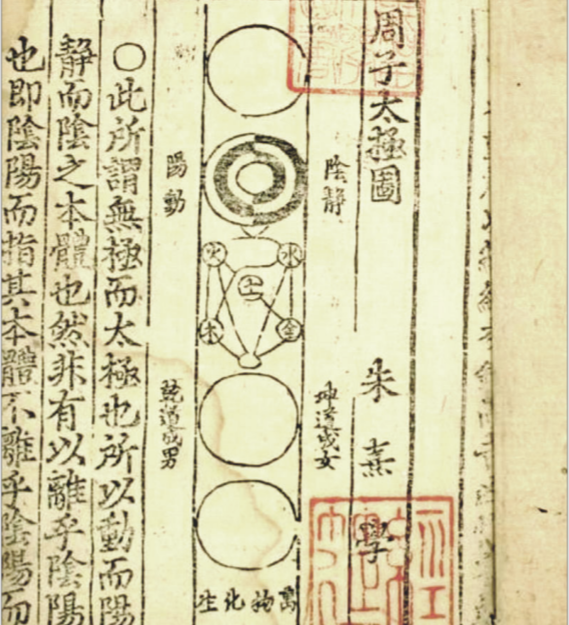 周子太極圖
朱熹學
陰靜
坤道成女
水火
土
金木
萬物化生
陽動
乾道成男
○此所謂無極而太極也所以動而陽
靜而陰之本體也然非有以離乎陰陽
也即陰陽而指其本體不離乎陰陽而